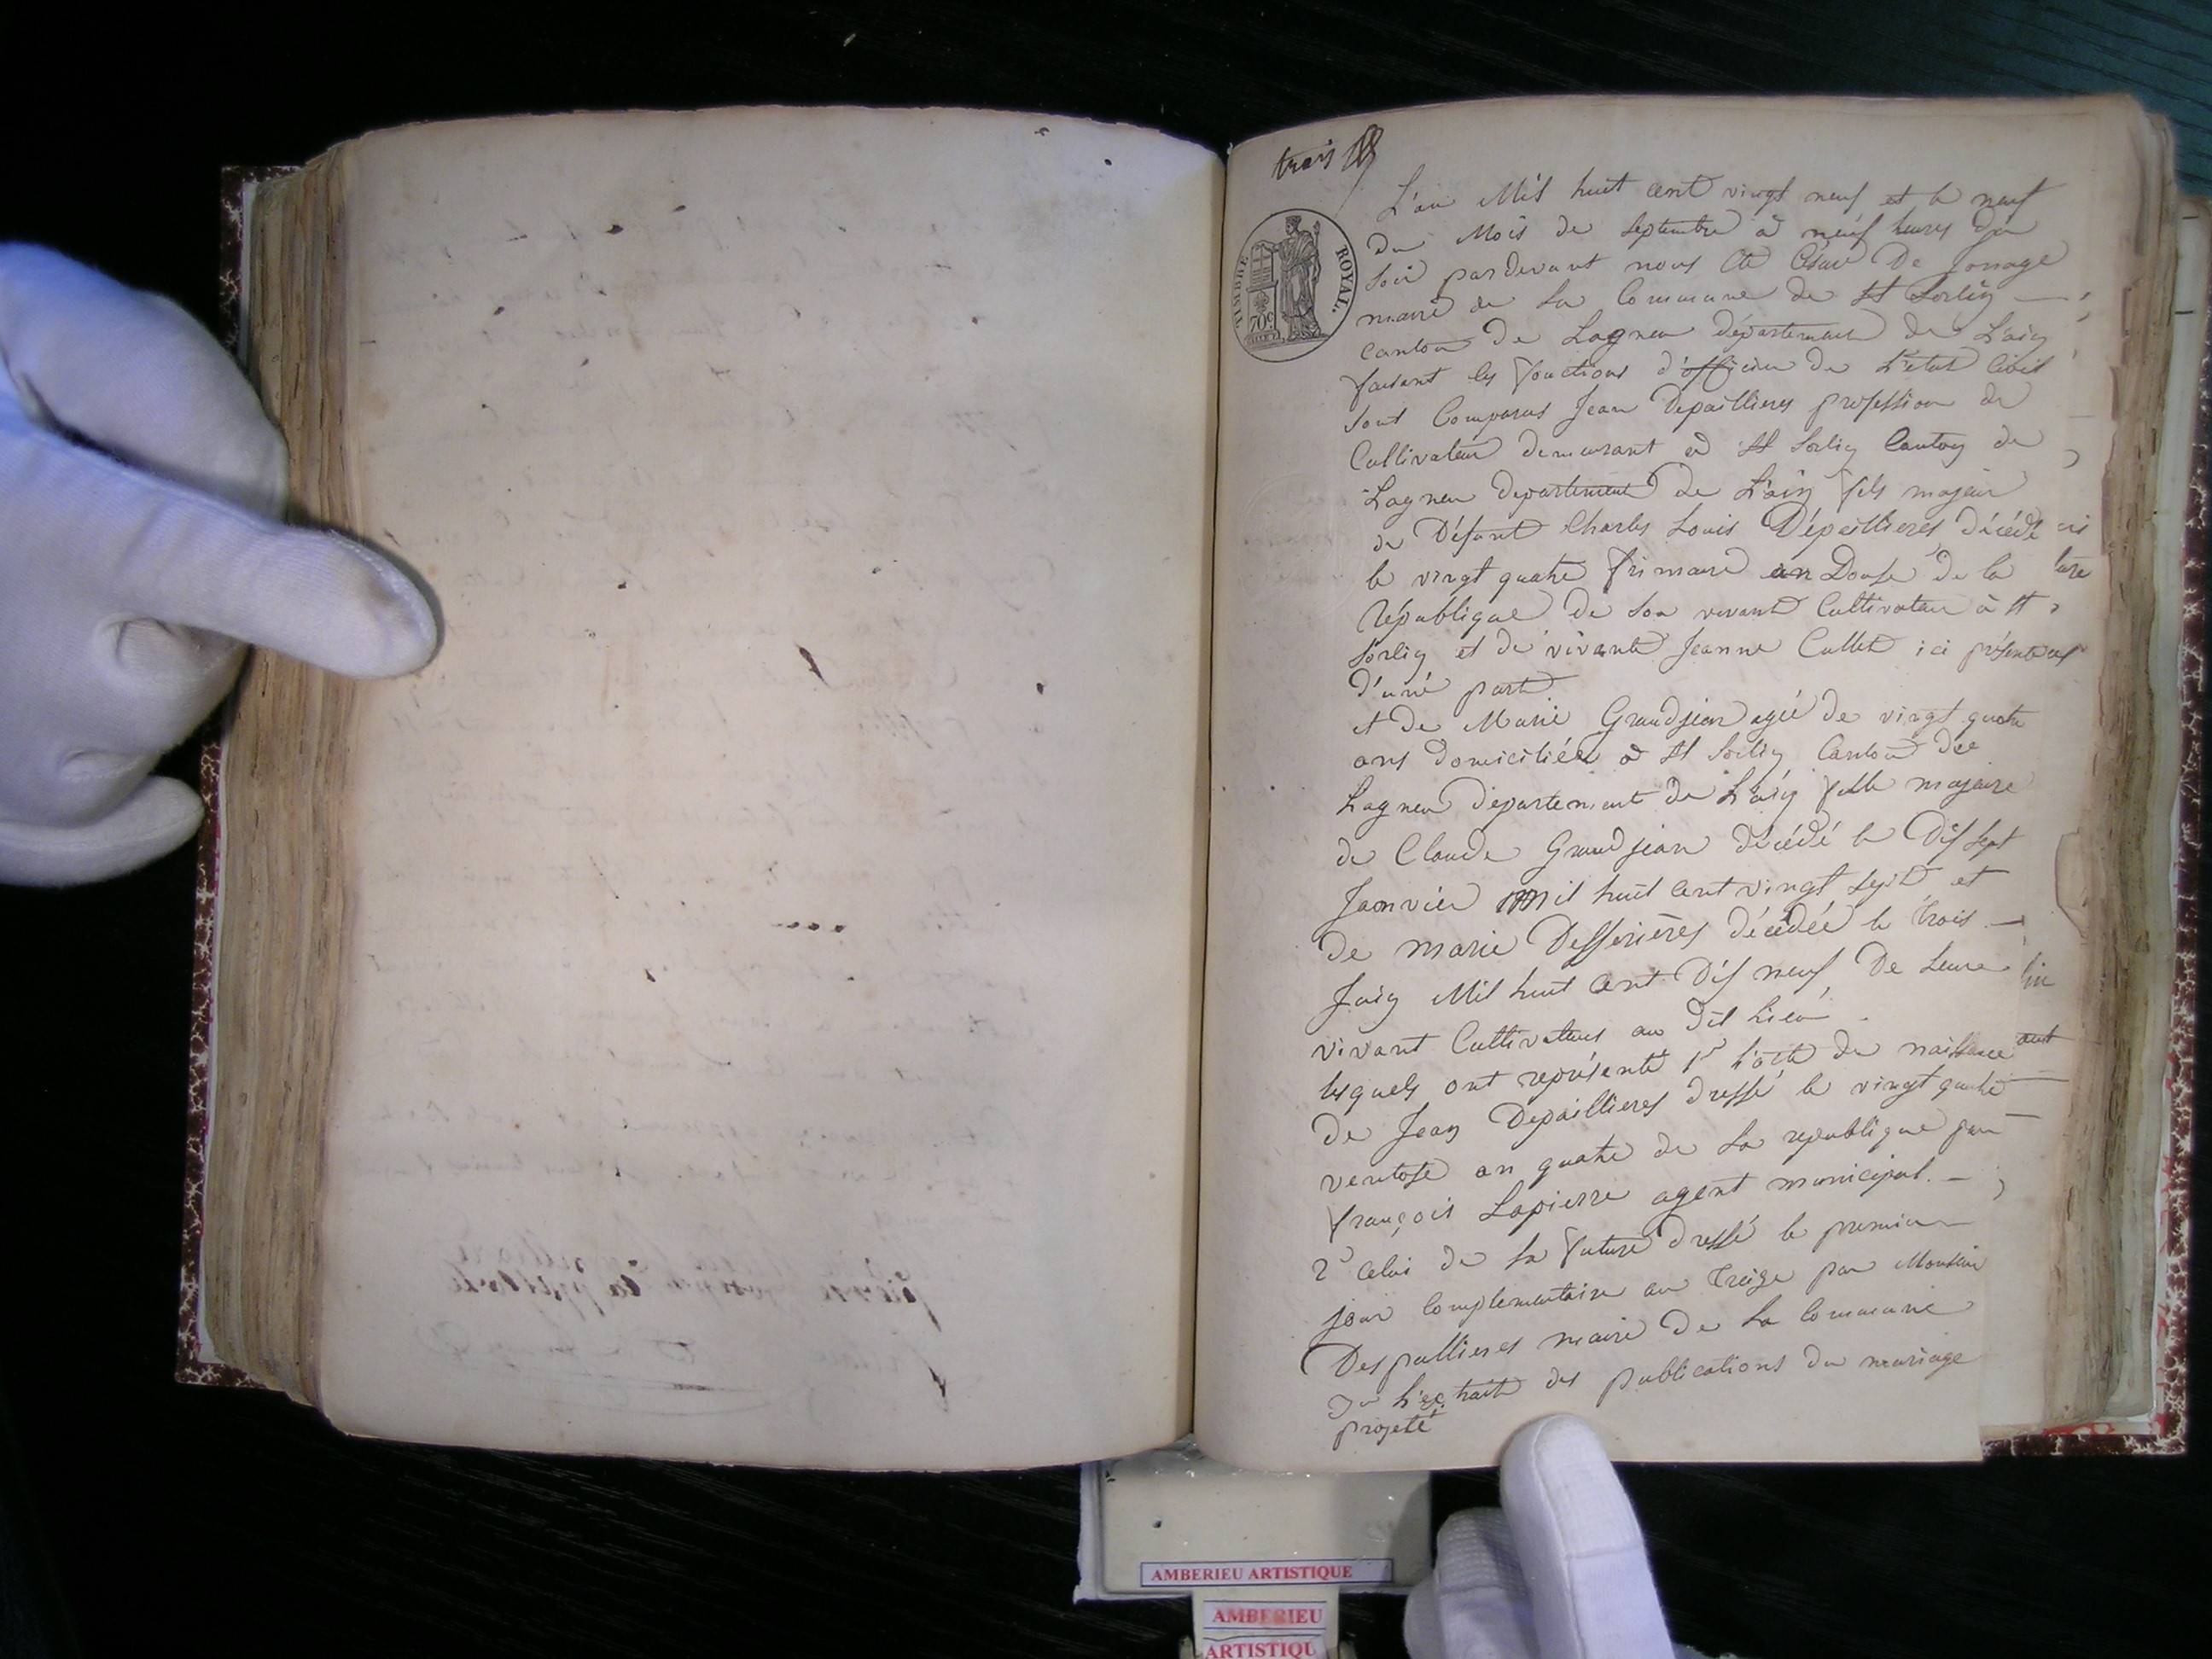 trois
TIMBRE ROYAL.
70c
L'an Mil huit cent vingt neuf et le neuf
du Mois de Septembre à neuf heures du
soir pardevant nous Cte César De Jonage
maire de la Commune de St Sorlin
canton de Lagneu département de L'ain
faisant les fonctions d'officier de L'état Civil
sont Comparus Jean Depaillieres profession de
Cultivateur demeurant à St Sorlin Canton de
Lagneu département de L'ain fils majeur
de Défunt Charles Louis Dépaillieres, décédé
le vingt quatre frimaire an Douse de la
République de son vivant Cultivateur à St
Sorlin et de vivante Jeanne Cullet ici présente
d'une part
et de Marie Grandjean agée de vingt quatre
ans domiciliée à St Sorlin Canton de
Lagneu département de L'ain fille majeure
de Claude Grandjean décédé le Dissept
Janvier mil huit cent vingt sept et
de marie Desserières décédée le trois
Juin Mil huit Cent Dis neuf, De Leure
vivant Cultivateurs au Dit Lieu
lesquels ont représenté 1° L'acte de naissance
de Jean Depaillieres dressé le vingt quatre
ventose an quatre de la republique par
françois Lapierre agent municipal.
2° Celui de la future dressé le premier
jour Complementaire an treize par Monsieur
Despallieres maire de la Commune
3° L'extrait des publications du mariage
projeté
AMBERIEU ARTISTIQUE
AMBERIEU
ARTISTIQU